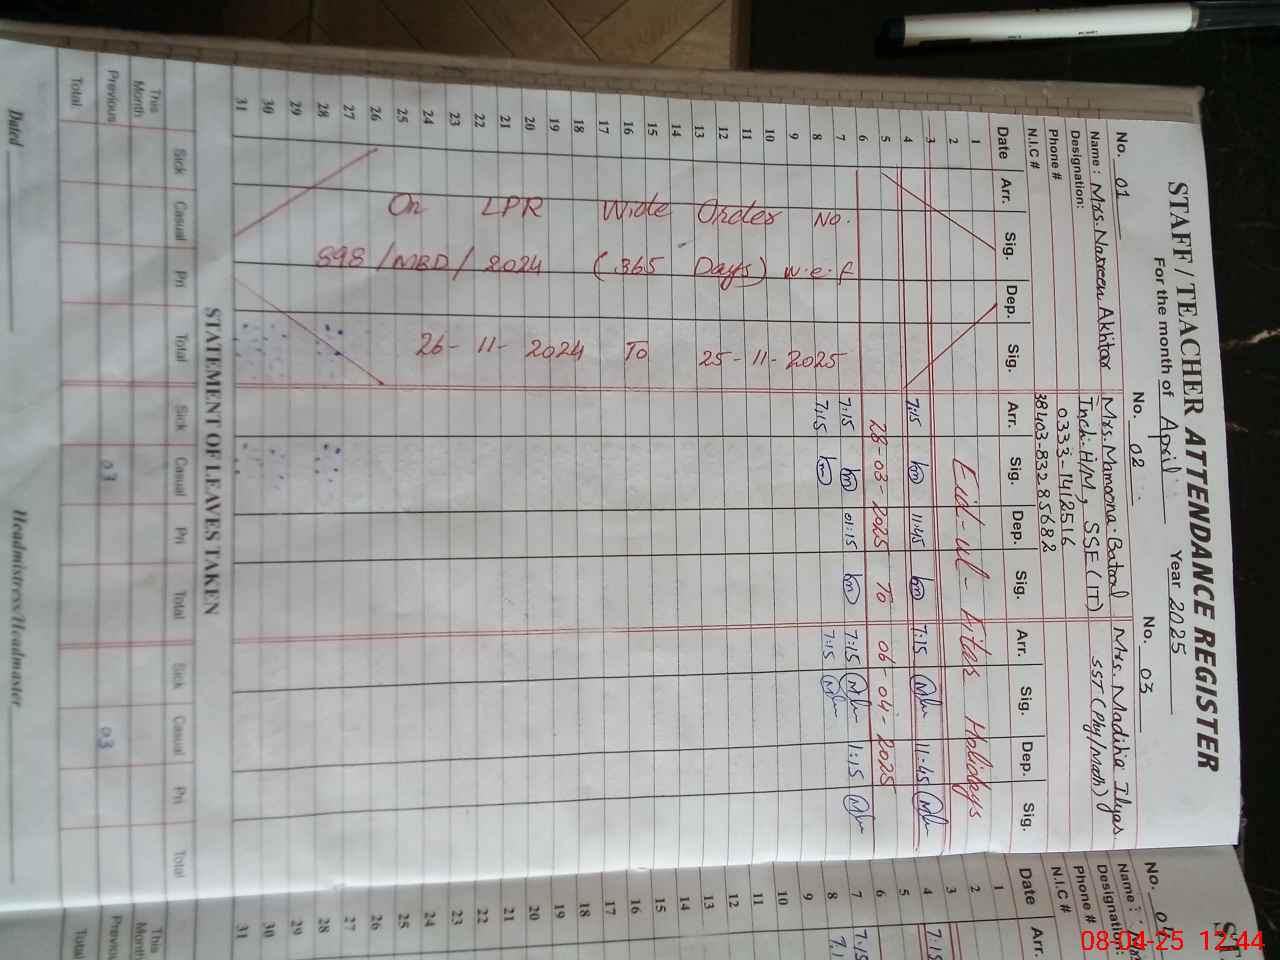 STAFF / TEACHER ATTENDANCE REGISTER
For the month of April Year 2025
No. 01 No. 02 No. 03
Name : Mrs. Nasreen Akhtar Mrs. Mamoona Batool Mrs. Madiha Ilyas
Designation: Inch: H/M, SSE (IT) SST (Phy/Math)
Phone # 0333-1412516
N.I.C # 38403-8328568 2
Date Arr. Sig. Dep. Sig. Arr. Sig. Dep. Sig. Arr. Sig. Dep. Sig.
1
2 Eid-ul-Fitar Holidays
3
4 7:15 11:45 7:15 11-45
5
6 28-03-2025 To 06-04-2025
7 7:15 01:15 7:15 1:15
8 7:15 7:15
On LPR Wide Order No.
898/MBD/2024 (365 Days) w.e.f
26-11-2024 To 25-11-2025
9
10
11
12
13
14
15
16
17
18
19
20
21
22
23
24
25
26
27
28
29
30
31
STATEMENT OF LEAVES TAKEN
Sick Casual Pri Total Sick Casual Pri Total Sick Casual Pri Total
This Month
Previous 03 03
Total
Dated Headmistress/Headmaster
ST
No. 0
Name :
Designation:
Phone #
N.I.C #
Date Arr.
1
2
3
4 7:15
5
6
7 7:15
8 7:1
9
10
11
12
13
14
15
16
17
18
19
20
21
22
23
24
25
26
27
28
29
30
31
This Month
Previous
Total
08-04-25 12:44